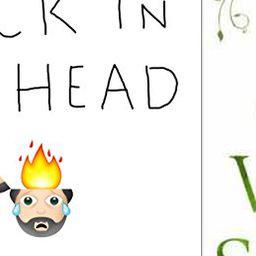 CK IN
HEAD